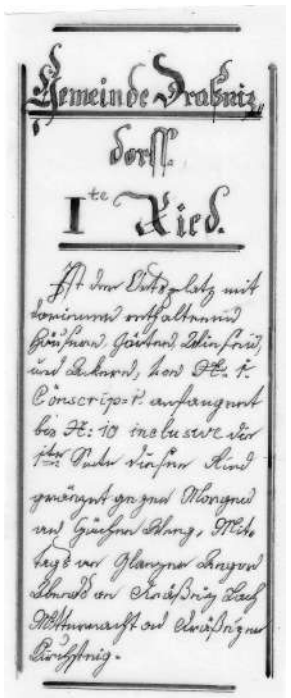 Gemeinde Draßniz
dorff.
I te Ried.
Ist der Ortsplatz mit
darinnen enthaltenen
Häusern, Gärten, Wiesen,
und Äckern, von N: 1.
Conscrip: anfangend
bis N: 10 inclusive die
Seite dieser Ried
gränzet gegen Morgen
an Weeg, Mit-
tags an Glanzer
Abends an Dräßniz Bach
Mitternacht an Dräßnizer
Kirchsteig.